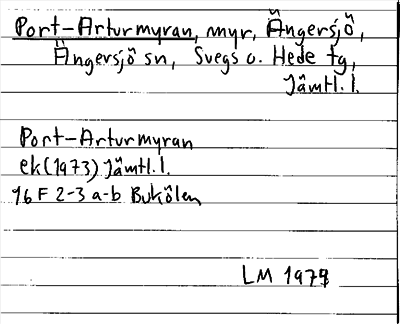 Port-Arturmyran, myr, Ängersjö,
Ängersjö sn, Svegs o. Hede tg,
Jämtl. l.
Port-Arturmyran
ek (1973) Jämtl. l.
16 F 2-3 a-b Bukölen
LM 1979